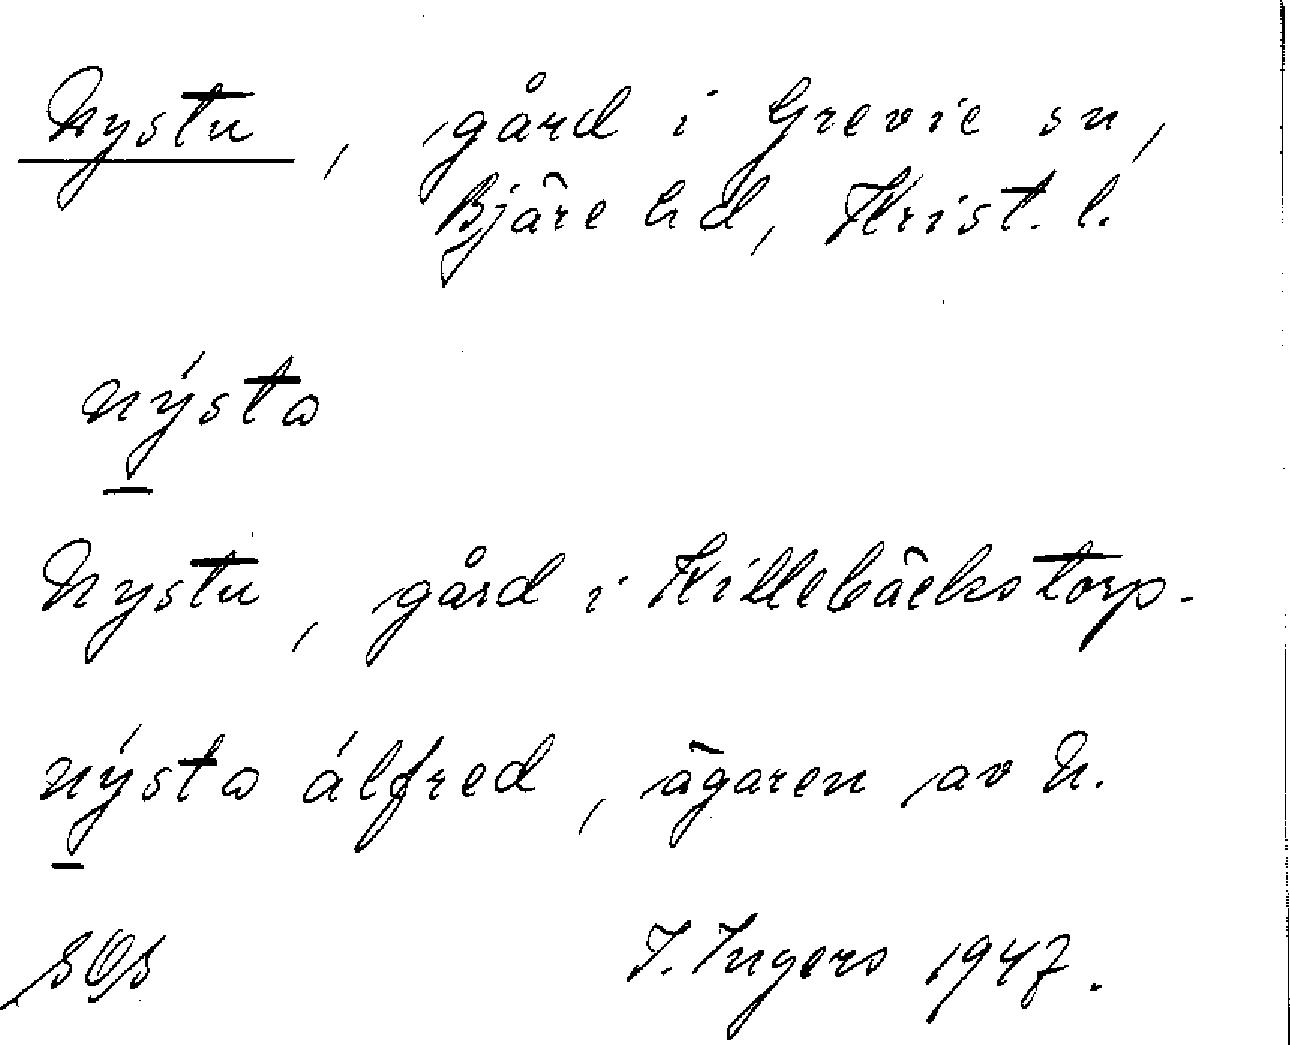 Nystu, gård i Grevie sn,
Bjäre hd, Krist. l.
nýsto
Nystu, gård i Killebäckstorp.
nýsto álfred, ägaren av N.
I. Ingers 1947.